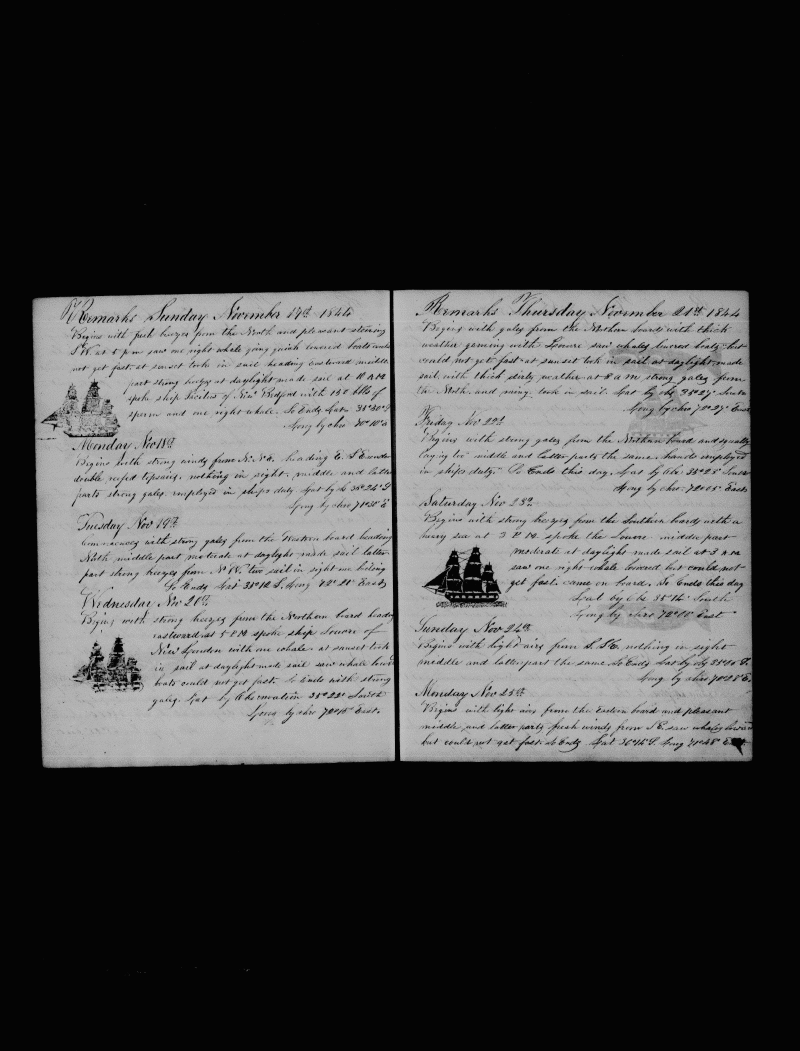 Remarks Sunday November 17th 1844
Begins with fresh breezes from the North and pleasant steering
S.W. at 5 p.m saw one right whale going quick lowered boats could
not get fast at sunset took in sail heading Eastward middle
part strong breezes at daylight made sail at 10 A M
spoke ship of New Bedford with 150 bbls of
sperm and one right whale. So Ends Lat 35°30 S
Long by chro 70°10 E
Monday Nov 18th
Begins with strong winds from heading E. S E under
double reefed topsails. nothing in sight. middle and latter
parts strong gales. employed in ships duty Lat by 35°24" S
Long by chro 71°30 E
Tuesday Nov 19th
Commences with strong gales from the Western board heading
North middle part moderate at daylight made sail latter
part strong breezes from N W. two sail in sight one boiling
So Ends Lat 35°12 S. Long 72°20" East
Wednesday Nov 20th
Begins with strong breezes from the Northern board heading
eastward at 5 P M spoke ship Louvre of
New London with one whale at sunset took
in sail at daylight made sail saw whale lowered
boats could not get fast. So Ends with strong
gales. Lat by Observation 35°23" South
Long by chro 72°15" East
Remarks Thursday November 21st 1844
Begins with gales from the Northern board with thick
weather gamming with Louvre saw whales lowered boats but
could not get fast at sunset took in sail at daylight made
sail with thick dirty weather at 8 a m strong gales from
the North and rainy took in sail. Lat by obs 35°27" South
Long by chro 72°27" East
Friday Nov 22d
Begins with strong gales from the Northern board and squally
laying too middle and latter parts the same. hands employed
in ships duty. So Ends this day. Lat by Obs 35°25" South
Long by chro 72°05" East
Saturday Nov 23d
Begins with strong breezes from the Southern board with a
heavy sea at 3 P M spoke the Louvre middle part
moderate at daylight made sail at 3 A M
saw one right whale lowered but could not
get fast. came on board. So Ends this day
Lat by Obs 35°14" South
Long by chro 72°00" East
Sunday Nov 24th
Begins with light airs from S. E. nothing in sight
middle and latter part the same So Ends Lat by S.
Long by chro 70°28" E.
Monday Nov 25th
Begins with light airs from the Eastern board and pleasant
middle and latter parts fresh winds from S E. saw whales lowered
but could not get fast. So Ends Lat 36°14" S. Long 71°48" East